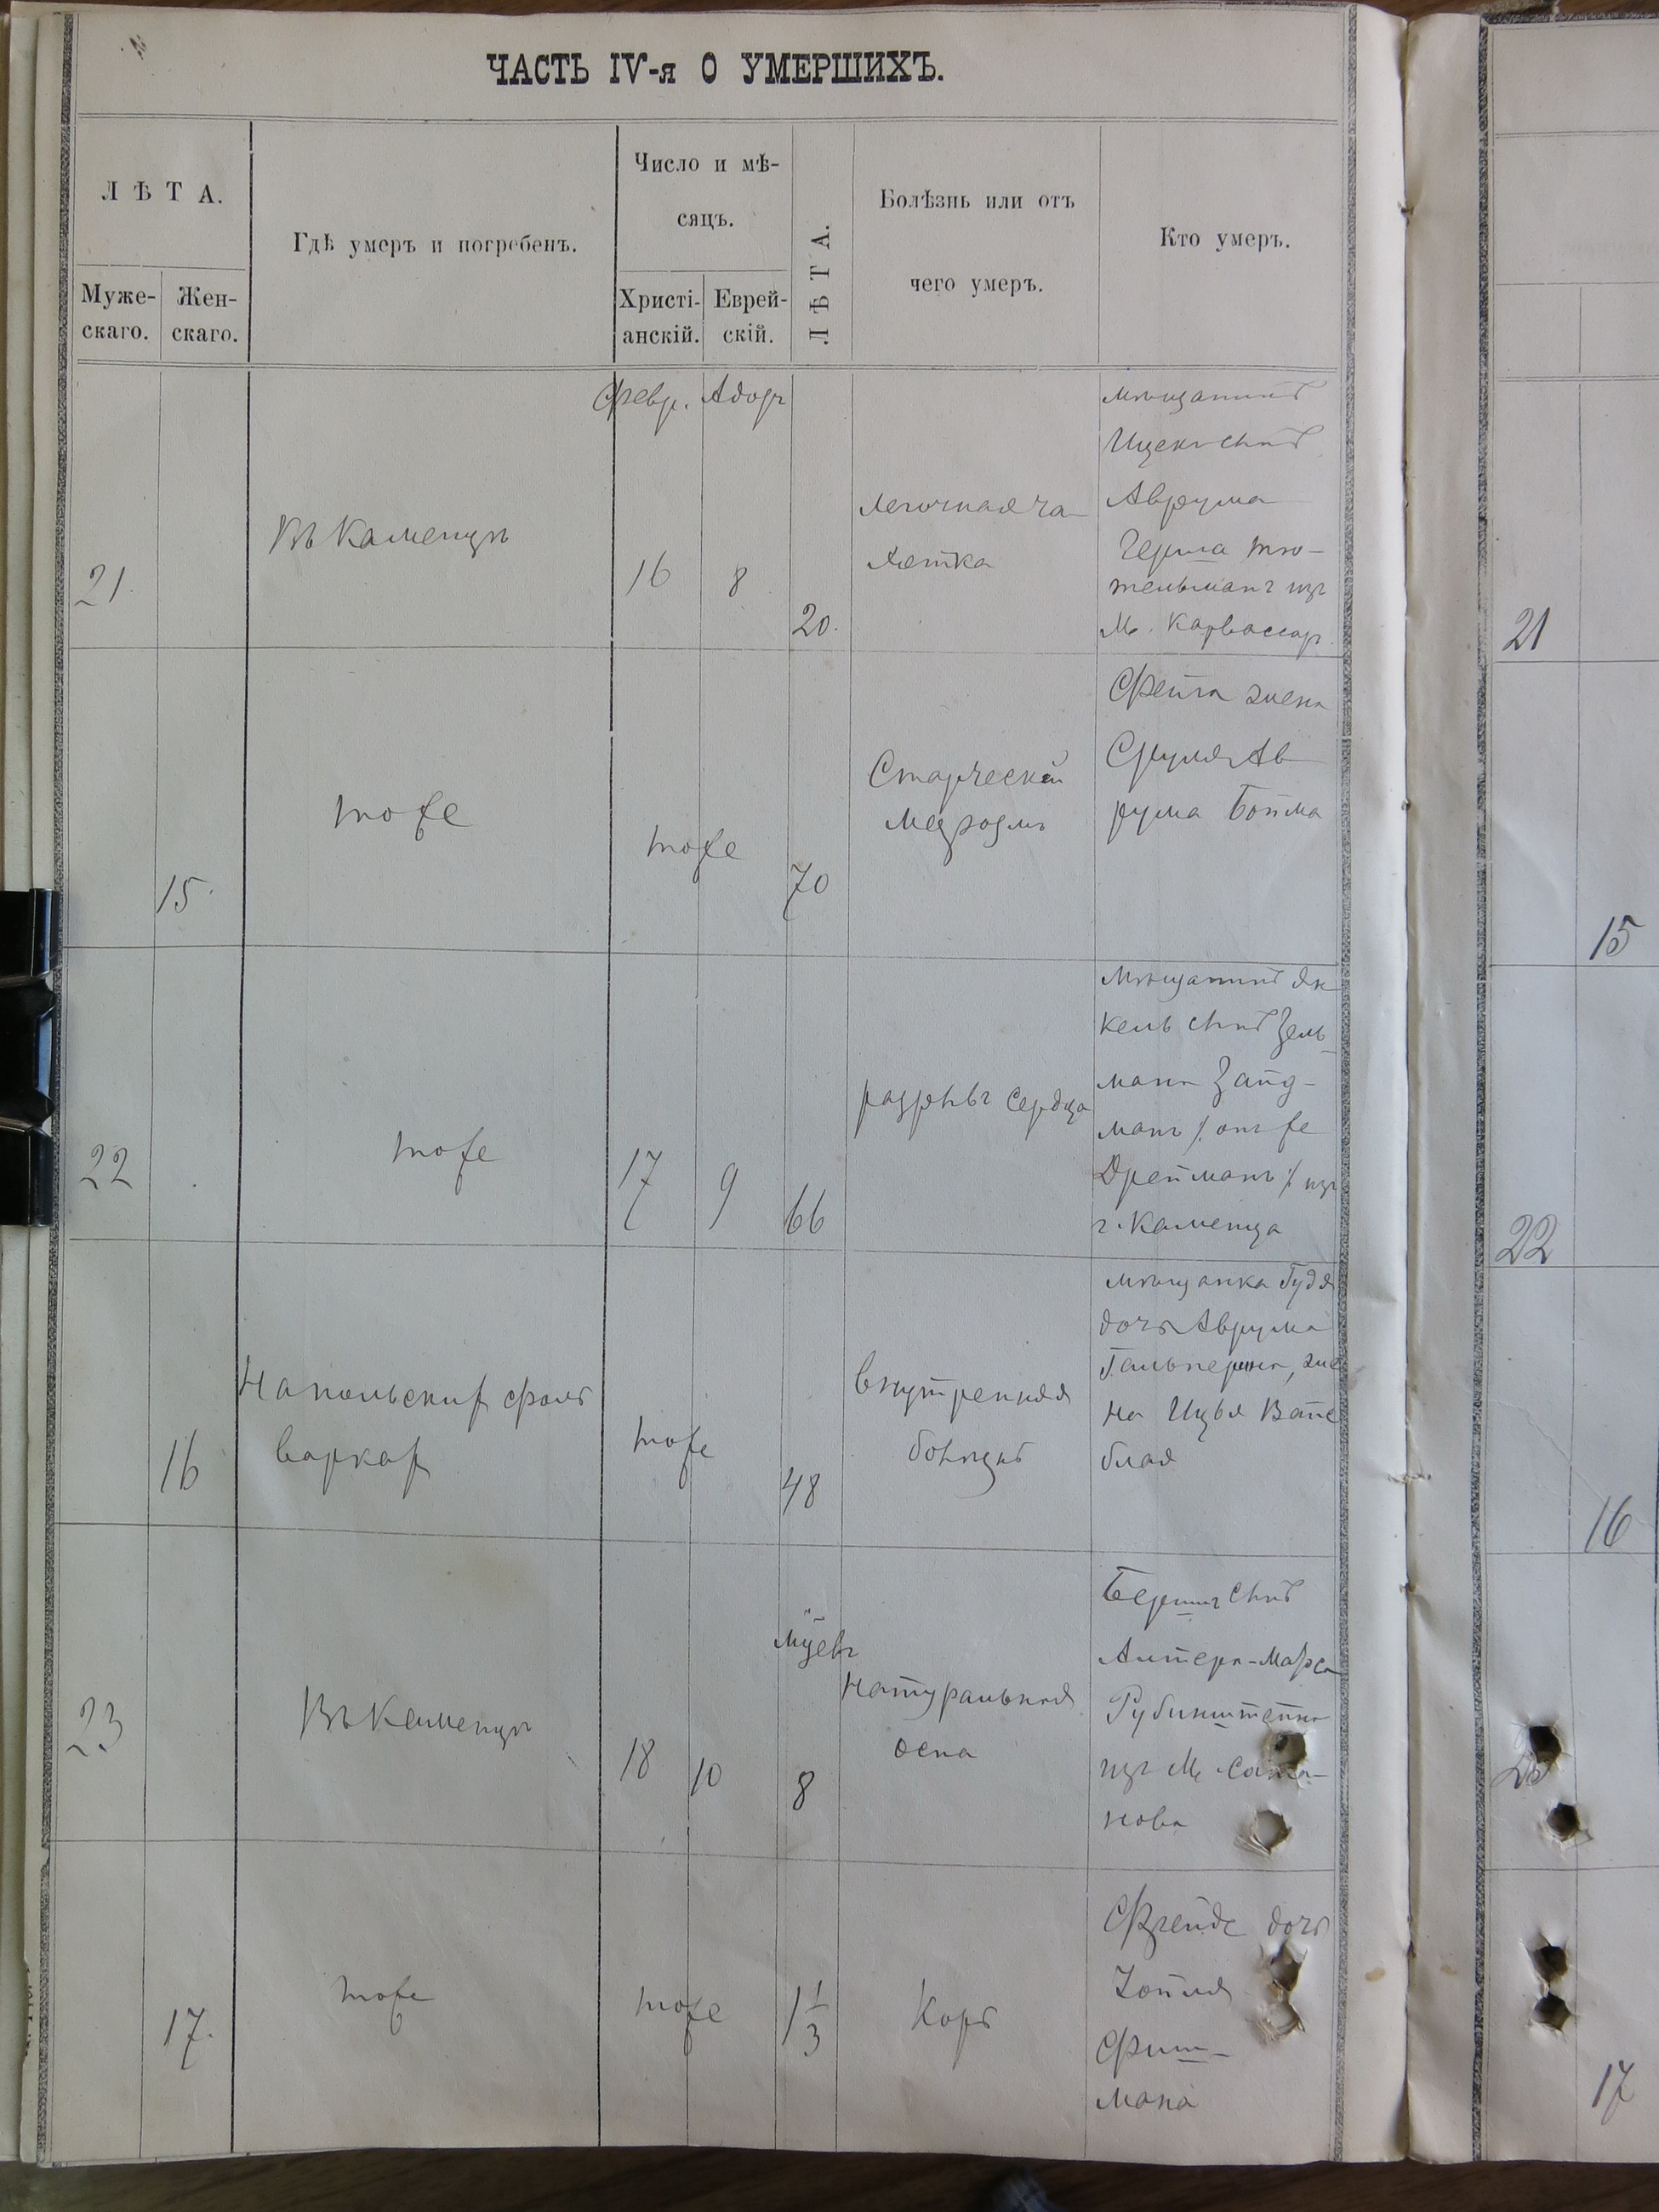 ЧАСТЬ IV-я О УМЕРШИХЪ.
ЛѢТА.
Муже-
скаго.
Жен-
скаго.
Гдѣ умеръ и погребенъ.
Число и мѣ-
сяцъ.
Христі-
анскій.
Еврей-
скій.
ЛѢТА.
Болѣзнь или отъ
чего умеръ.
Кто умеръ.
Февр. Адаръ
21.
Въ Каменцѣ
16
8
20.
легочная ча-
хотка
мѣщанинъ
Ицекъ сынъ
Аврума
Герша
тельманъ изъ
м. Карвасаръ
21
15.
тоже
тоже
70
Старческій
маразмъ
Фейга жена
Сруля Ав-
рума Бойма
15
22
тоже
17
9
66
разрывъ сердца
мѣщанинъ Ян-
кель сынъ Зель-
мана Зайд-
манъ /. онъ же
Дрейманъ ./ изъ
г. Каменца
22
16
На польских фоль-
варках
тоже
48
внутренняя
болѣзнь
мѣщанка Гудя
дочь Аврума
Гальперина, же-
на Ицья Вайс-
блат
16
23
Въ Каменцѣ
18
10
мѣсяцевъ
8
натуральная
оспа
Бершъ сынъ
Алтера-
Рубинштейна
изъ м. Сата-
нова
23
17.
тоже
тоже
1 1/3
Корь
Фрейде дочь
Хоиля
Фиш-
мана
17